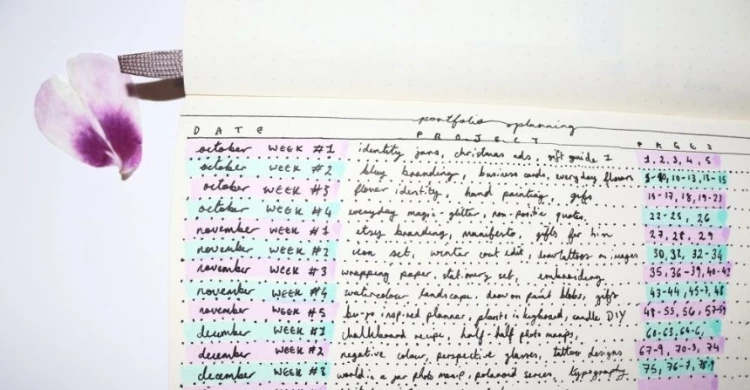 portfolio planning
DATE PROJECT PAGES
october WEEK #1 identity jams, christmas ads, gift guide 1 1, 2, 3, 4, 5
october WEEK #2 branding, business cards, everyday flowers 10-13, 13-15
october WEEK #3 flower identity, hand painting, gifs 15-17, 18, 19-21
october WEEK #4 everyday magic-glitter, non-positive quotes, 22-25, 26
november WEEK #1 etsy branding, manifesto, gifts for him 27, 28, 29
november WEEK #2 icon set, winter coat edit, on images 30, 32, 32-34
november WEEK #3 wrapping paper, stationary set, embroidery 35, 36-39, 40-42
november WEEK #4 watercolour landscape, draw on paint blobs, gifs 43-44, 45-7, 48
november WEEK #5 inspired planner, plants in keyboard, candle DIY 48-53, 56, 57-59
december WEEK #1 chalkboard recipe, half-half photo manips, 60-63, 64-6,
december WEEK #2 negative colour, perspective glasses, tattoo designs 67-9, 70-3, 74
december WEEK #3 world in a jar photo manip, polaroid series, typography 75, 76-7,